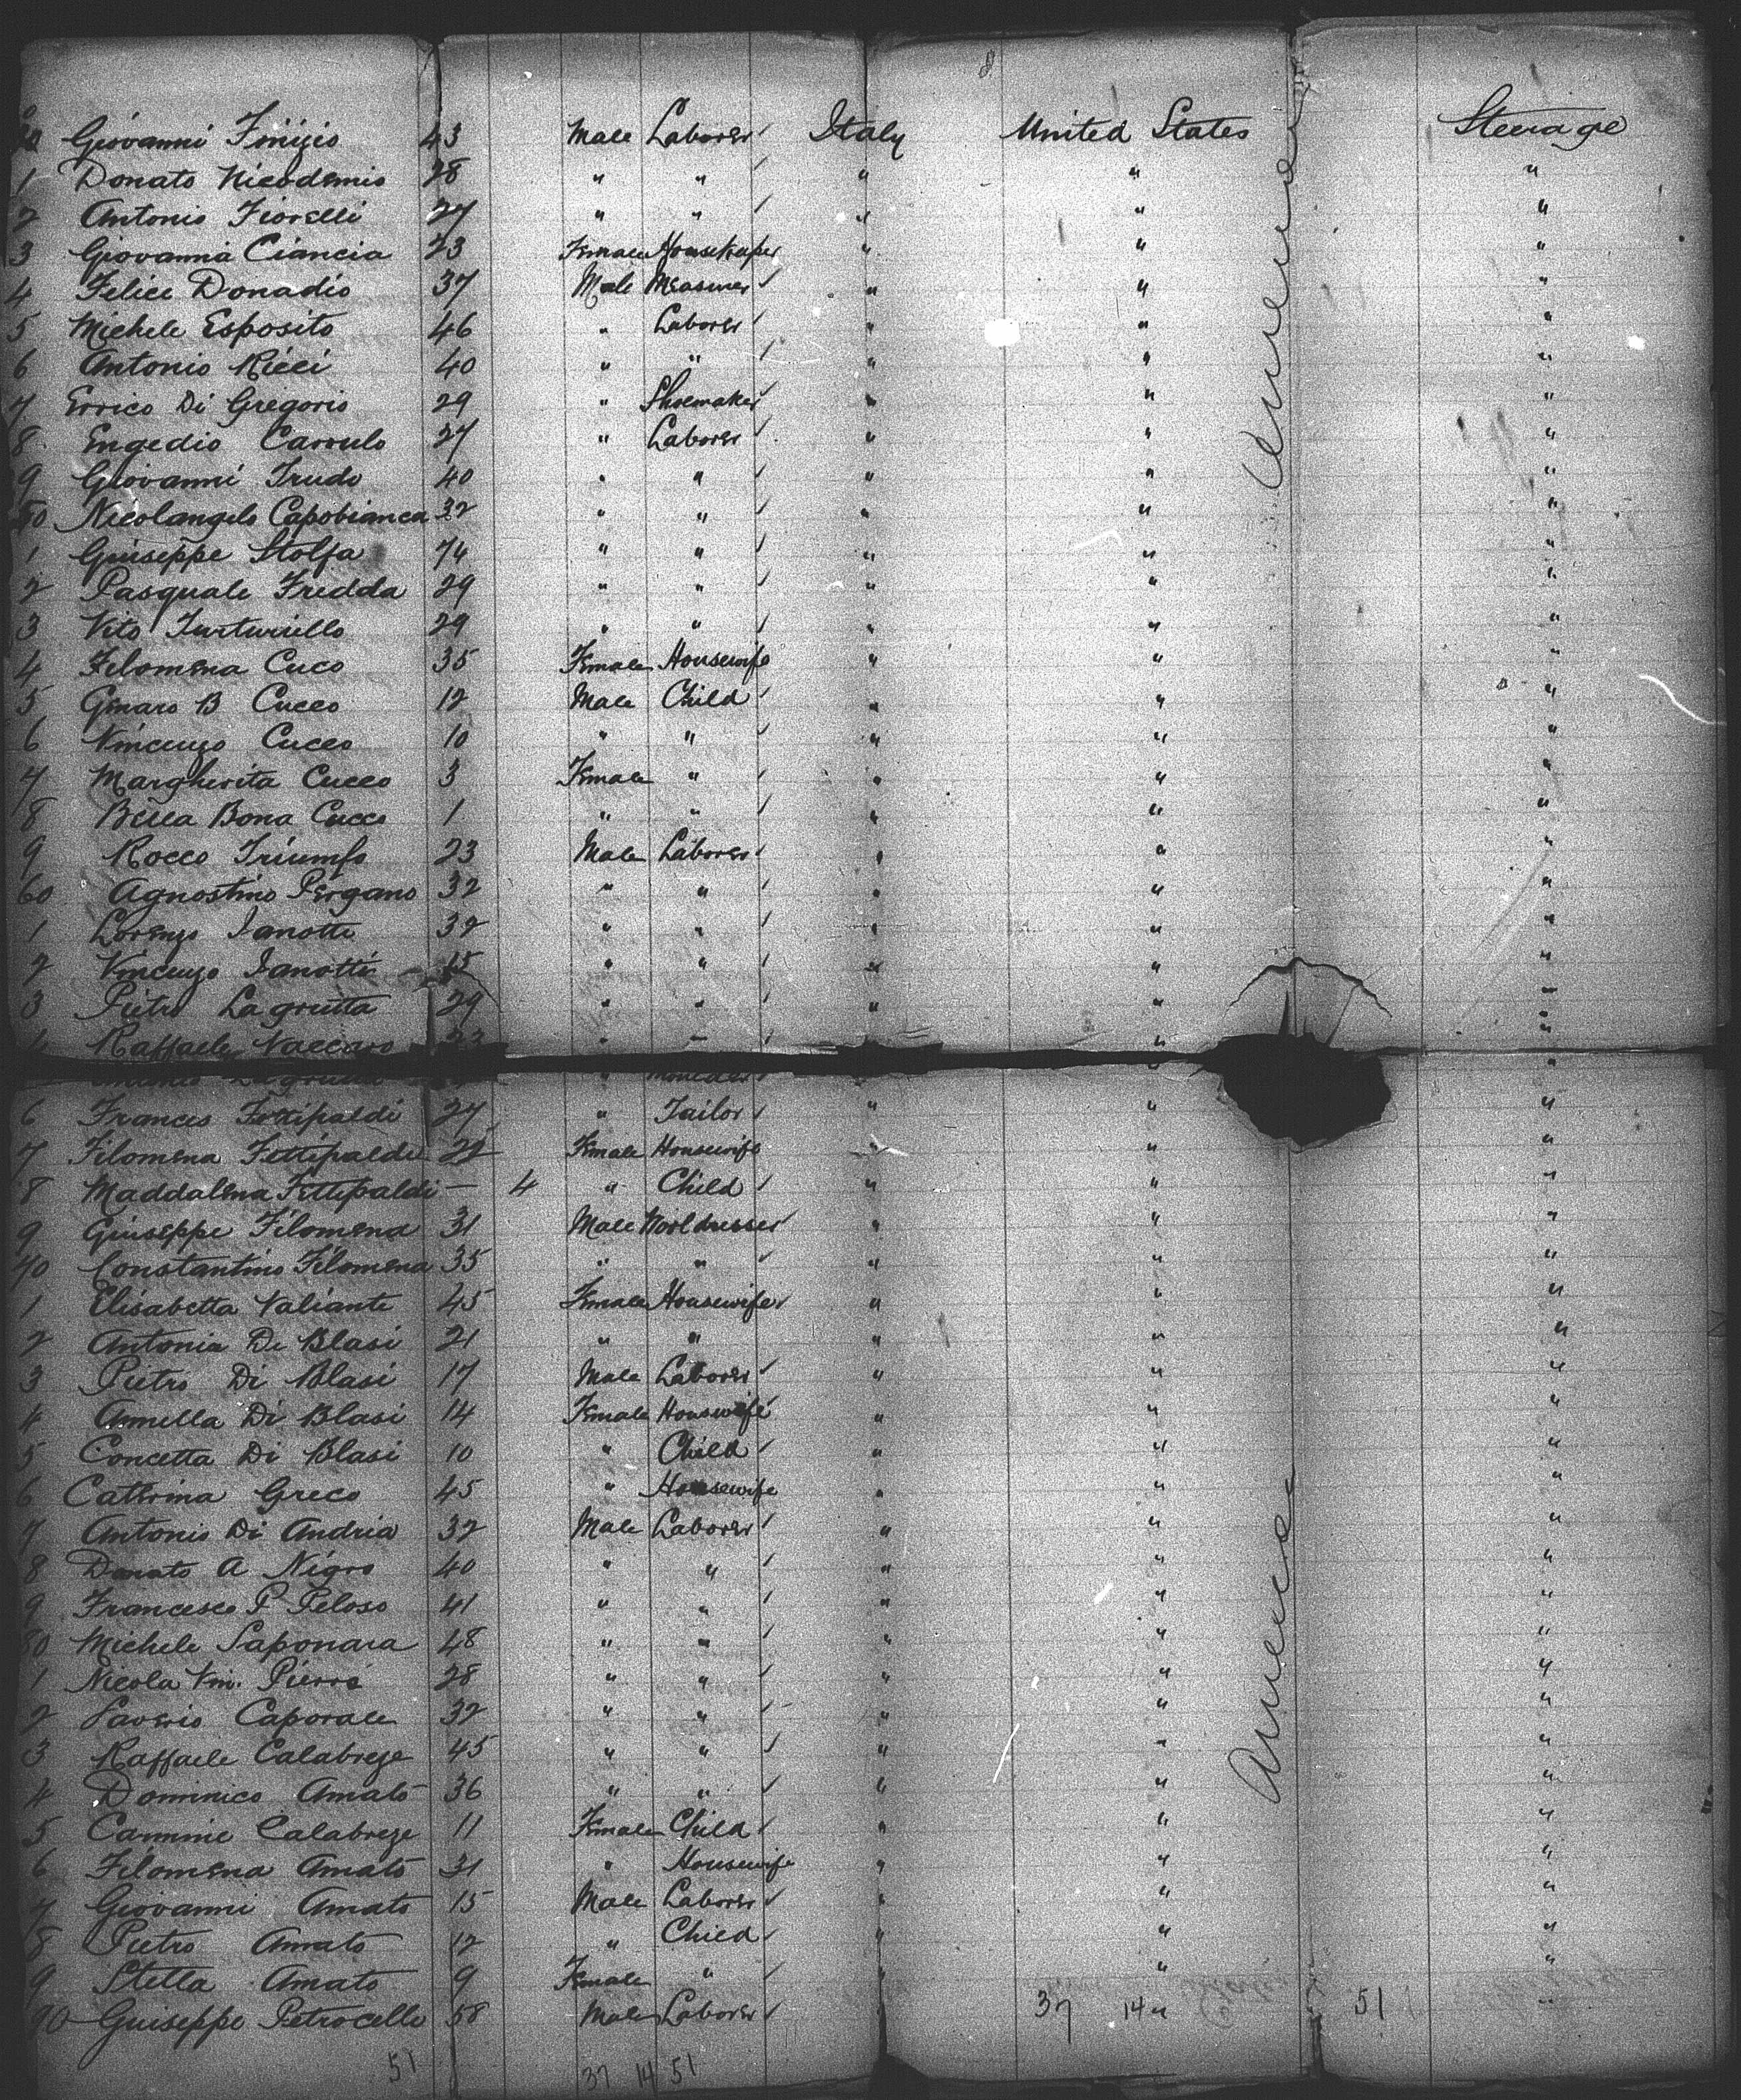 8
40 Giovanni Finizio 43 Male Laborer Italy United States Steerage
1 Donato Nicodemio 28 " " " " "
2 Antonio Fiorelli 27 " " " " "
3 Giovanna Ciancia 23 Female Housekeeper " " "
4 Felice Donadio 37 Male " " "
5 Michele Esposito 46 " Laborer " " "
6 Antonio Ricci 40 " " " " "
7 Errico Di Gregorio 29 " Shoemaker " " "
8 Engedio Carrulo 27 " Laborer " " "
9 Giovanni Trudo 40 " " " " "
50 Nicolangelo Capobianca 32 " " " " "
1 Giuseppe Stolfa 74 " " " " "
2 Pasquale Fredda 29 " " " " "
3 Vito Turturiello 29 " " " " "
4 Filomena Cuco 35 Female Housewife " " "
5 Genaro B Cucco 12 Male Child " " "
6 Vincenzo Cucco 10 " " " " "
7 Margherita Cucco 3 Female " " " "
8 Bella Bona Cucco 1 " " " " "
9 Rocco Triumfo 23 Male Laborer " " "
60 Agnostino Pergamo 32 " " " " "
1 Lorenzo Ianotti 32 " " " " "
2 Vincenzo Ianotti 15 " " " " "
3 Pietro Lagrutta 29 " " " " "
4 Raffaele Vaccaro 23 " " " "
Antonio Lagrutta " "
6 Frances Fettipaldi 27 " Tailor " " "
7 Filomena Fettipaldi 22 Female Housewife " " "
8 Maddalena Fettipaldi — 4 " Child " " "
9 Giuseppe Filomena 31 Male Wooldresser " " "
70 Constantino Filomena 35 " " " " "
1 Elisabetta Valiante 45 Female Housewife " " "
2 Antonia Di Blasi 21 " " " " "
3 Pietro Di Blasi 17 Male Laborer " " "
4 Annella Di Blasi 14 Female Housewife " " "
5 Concetta Di Blasi 10 " Child " " "
6 Caterina Greco 45 " Housewife " " "
7 Antonio Di Andria 32 Male Laborer " " "
8 Donato A Nigro 40 " " " " "
9 Francesco P Peloso 41 " " " " "
80 Michele Saponara 48 " " " " "
1 Nicola Vin. Pierre 28 " " " " "
2 Saverio Caporale 32 " " " " "
3 Raffaele Calabreze 45 " " " " "
4 Dominico Amato 36 " " " " "
5 Carmine Calabreze 11 Female Child " " "
6 Filomena Amato 31 " Housewife " " "
7 Giovanni Amato 15 Male Laborer " " "
8 Pietro Amato 12 " Child " " "
9 Stella Amato 9 Female " " "
90 Guiseppe Petrocelle 58 Male Laborer 37 14 " 51 "
51 37 14 51